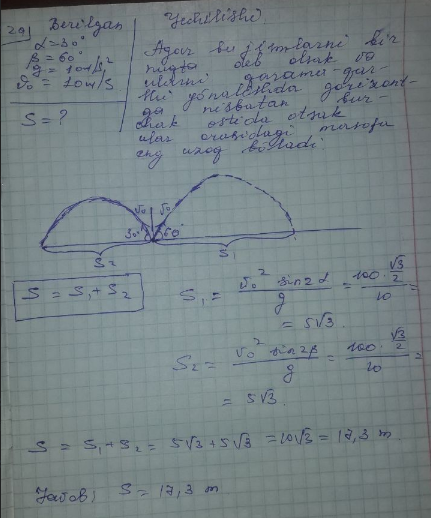 29) Berilgan
α = 30°
β = 60°
g = 10 m/s²
v₀ = 10 m/s
S = ?
Yechilishi.
Agar bu jismlarni bir
nuqta deb olsak va
ularni qarama-qar-
shi yo'nalishda gorizont-
ga nisbatan bur-
chak ostida otsak
ular orasidagi masofa
eng uzoq bo'ladi
v₀ v₀
30° 60°
S₂ S₁
S = S₁ + S₂
S₁ = v₀² sin2α / g = 100 · √3/2 / 10 =
= 5√3.
S₂ = v₀² sin2β / g = 100 · √3/2 / 10 =
= 5√3.
S = S₁ + S₂ = 5√3 + 5√3 = 10√3 = 17,3 m.
Javob: S = 17,3 m